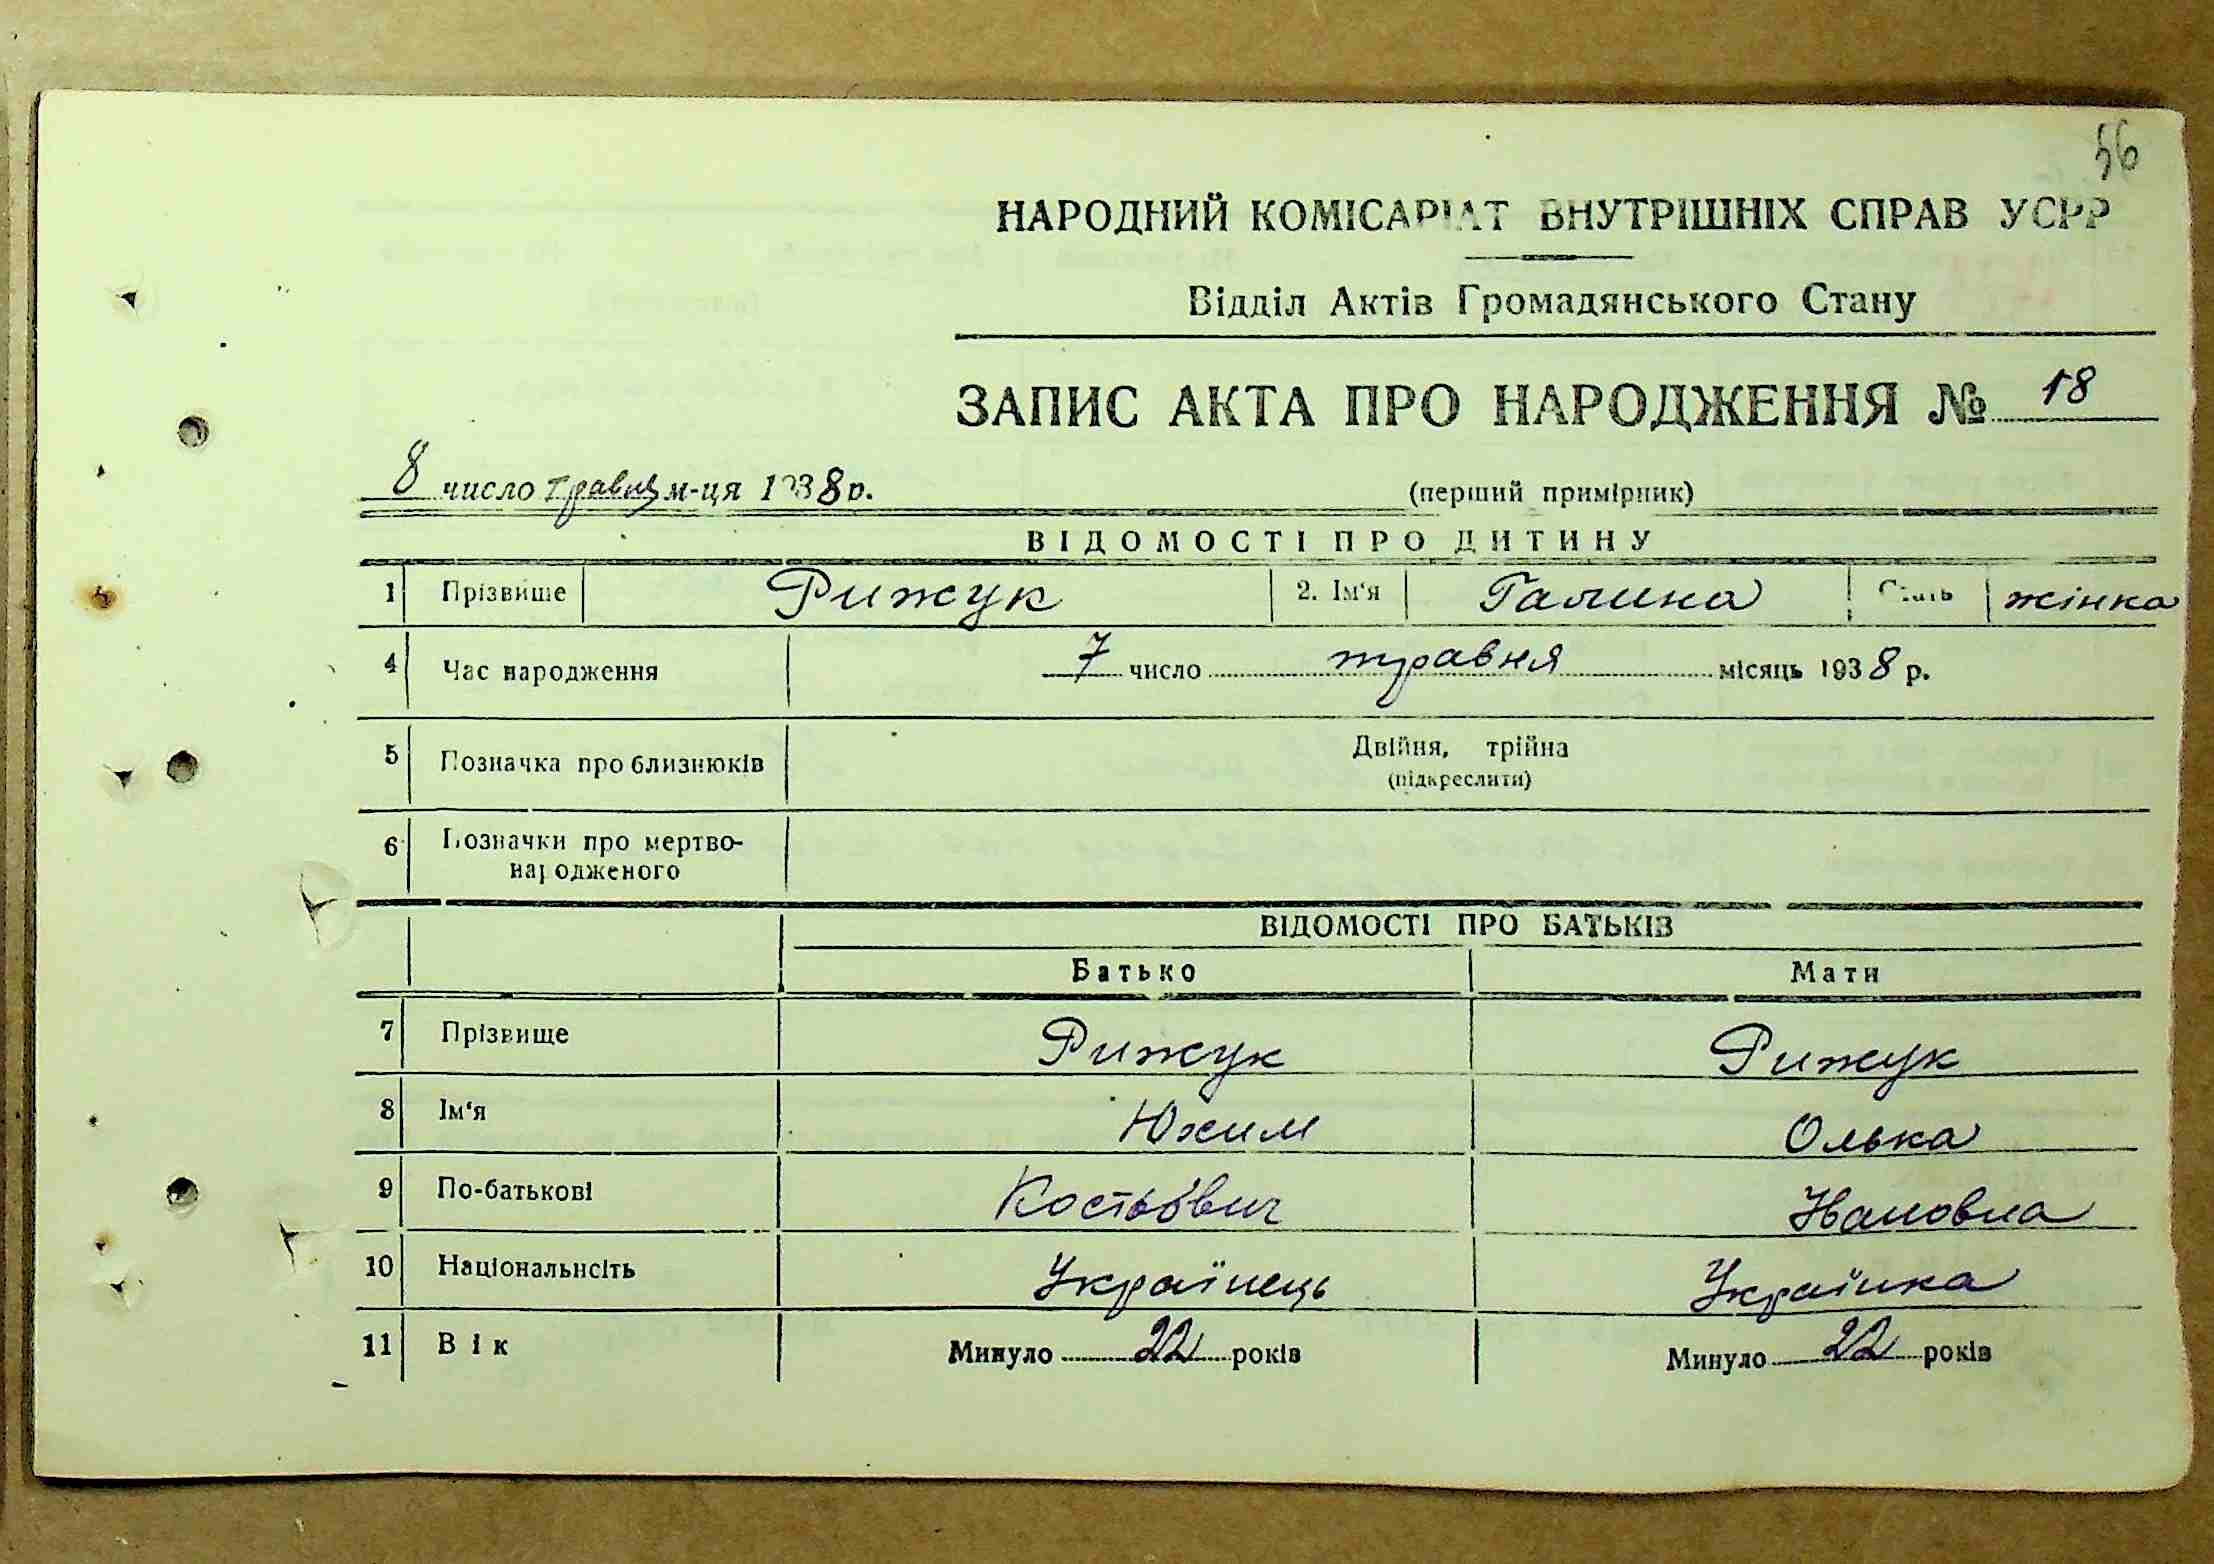 56
НАРОДНИЙ КОМІСАРІАТ ВНУТРІШНІХ СПРАВ УСРР
Відділ Актів Громадянського Стану
ЗАПИС АКТА ПРО НАРОДЖЕННЯ № 18
8 число травня м-ця 1938 р.
(перший примірник)
ВІДОМОСТІ ПРО ДИТИНУ
1 Прізвище Рижук 2. Ім'я Галина Стать жінка
4 Час народження 7 число травня місяць 1938 р.
5 Позначка про близнюків Двійня, трійна
(підкреслити)
6 Позначки про мертво-
народженого
ВІДОМОСТІ ПРО БАТЬКІВ
Батько Мати
7 Прізвище Рижук Рижук
8 Ім'я Юхим Олька
9 По-батькові Костьович Івановна
10 Національнсіть Українець Українка
11 Вік Минуло 22 років Минуло 22 років